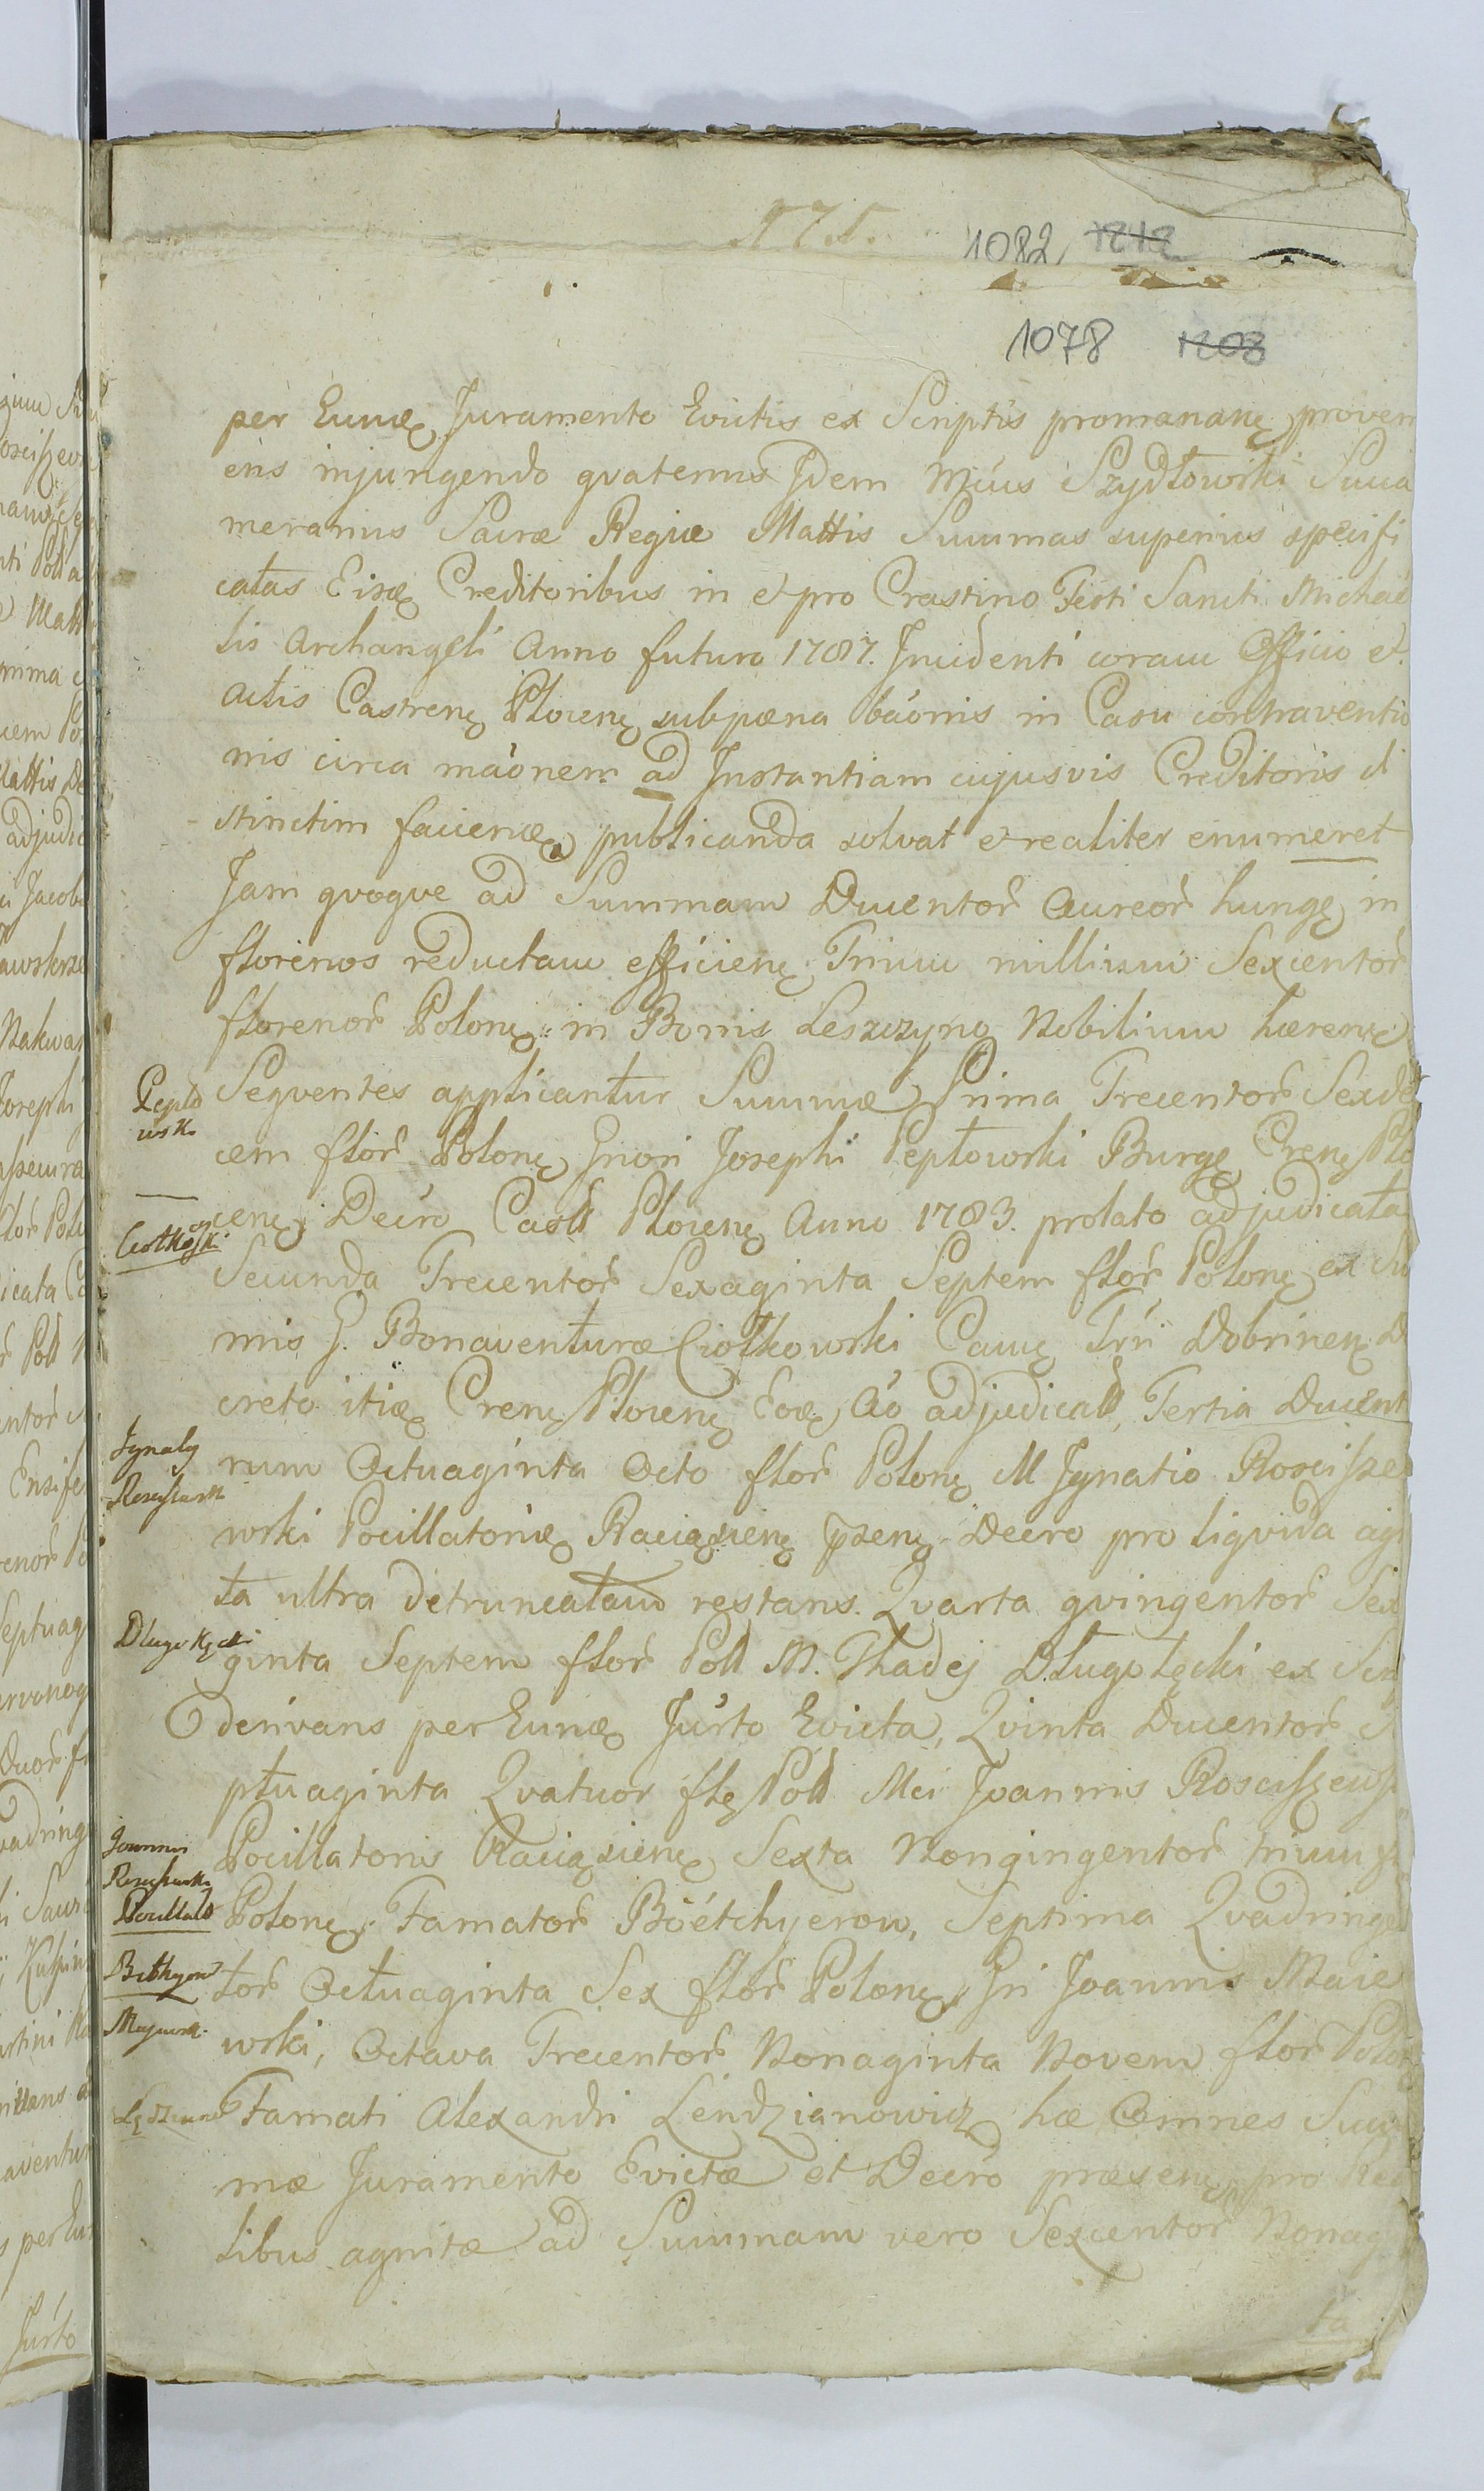 575.
1082, 1212
1078 1208
per Eundę Juramento Evictis ex Scriptis promananę proven
ens injungendo qvatenus Idem Mcus Szydłowski Succa
merarius Sacræ Regiæ Mattis Summas superius specifi
catas Eisdę Creditoribus in et pro Crastino Festi Sancti Michaë
lis Archangeli Anno futuro 1787. Incidenti coram Officio et
Actis Castrenę Plocenę sub pæna báonis in Casu contraventio
nis circa máonem ad Instantiam cujusvis Creditoris di
stinctim faciendę publicanda solvat et realiter enumeret
Jam qvoqve ad Summam Ducentor Aureor hungę in
florenos reductam efficienę Trium millium Sexcentor
florenor Polonę in Bonis Leszczyno Nobilium hærenę
Seqventes applicantur Summæ Prima Trecentor Sexde
cem flor Polonę Gnori Josephi Pepłowski Burgę Crenę Plo
cenę Decro Castl Plocenę Anno 1783. prolato adjudicata
Secunda Trecentor Sexaginta Septem flor Polonę ex Su
mis G. Bonaventuræ Ciołkowski Camę Trri Dobrinenę De
creto itidę Crenę Plocenę Eodę Ao adjudicatl, Tertia Ducento
rum Octuaginta Octo flor Polonę M Ignatio Rosciszę
wski Pocillatoridę Raciązienę pzenę Decro pro liqvida agni
ta ultra detruncatam restans. Qvarta qvingentor Sexa
ginta Septem flor Poll M. Thadej Długołęcki ex Scrip
derivans per Eundę Jurto Evicta, Qvinta Ducentor Se
ptuaginta Qvatuor flę Poll Mci Joannis Rosciszewsk
Pocillatoris Raciązienę Sexta Nongingentor trium
Polonę Famator Böétchyerow, Septima Qvadringen
tor Octuaginta Sex flor Polonę Gri Joannis Maie
wski, Octava Trecentor Nonaginta Novem flor Polon
Famati Alexandri Lendzianowicz hæ Omnes Sum
mæ Juramento Evictæ et Decro præsenę pro Rea
libus agnitæ ad Summam vero Sexcentor Nonagin
ta
Pepło
wsk
Ciołkoski
Ignaty
Rosciszewsk
Długołęcki
Joannis
Rosciszewsk
Pocillato
Betkyerow
Majewsk